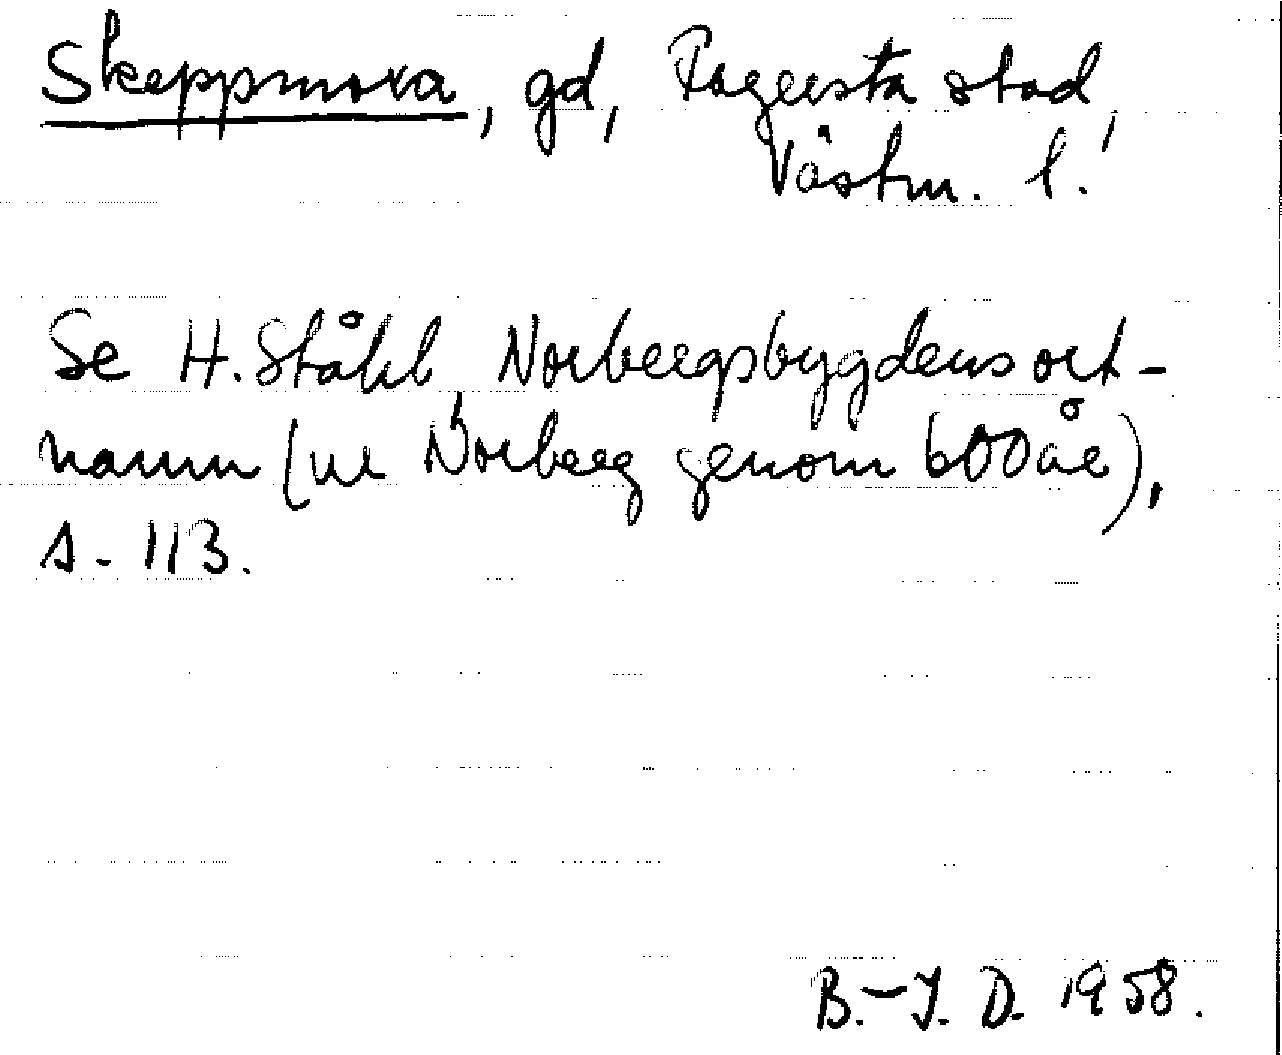 Skeppmora, gd, Fagersta stad,
Västm. l.
Se H. Ståhl Norbergsbygdens ort-
namn (ur Norberg genom 600 år),
s. 113.
B.-I. D. 1958.